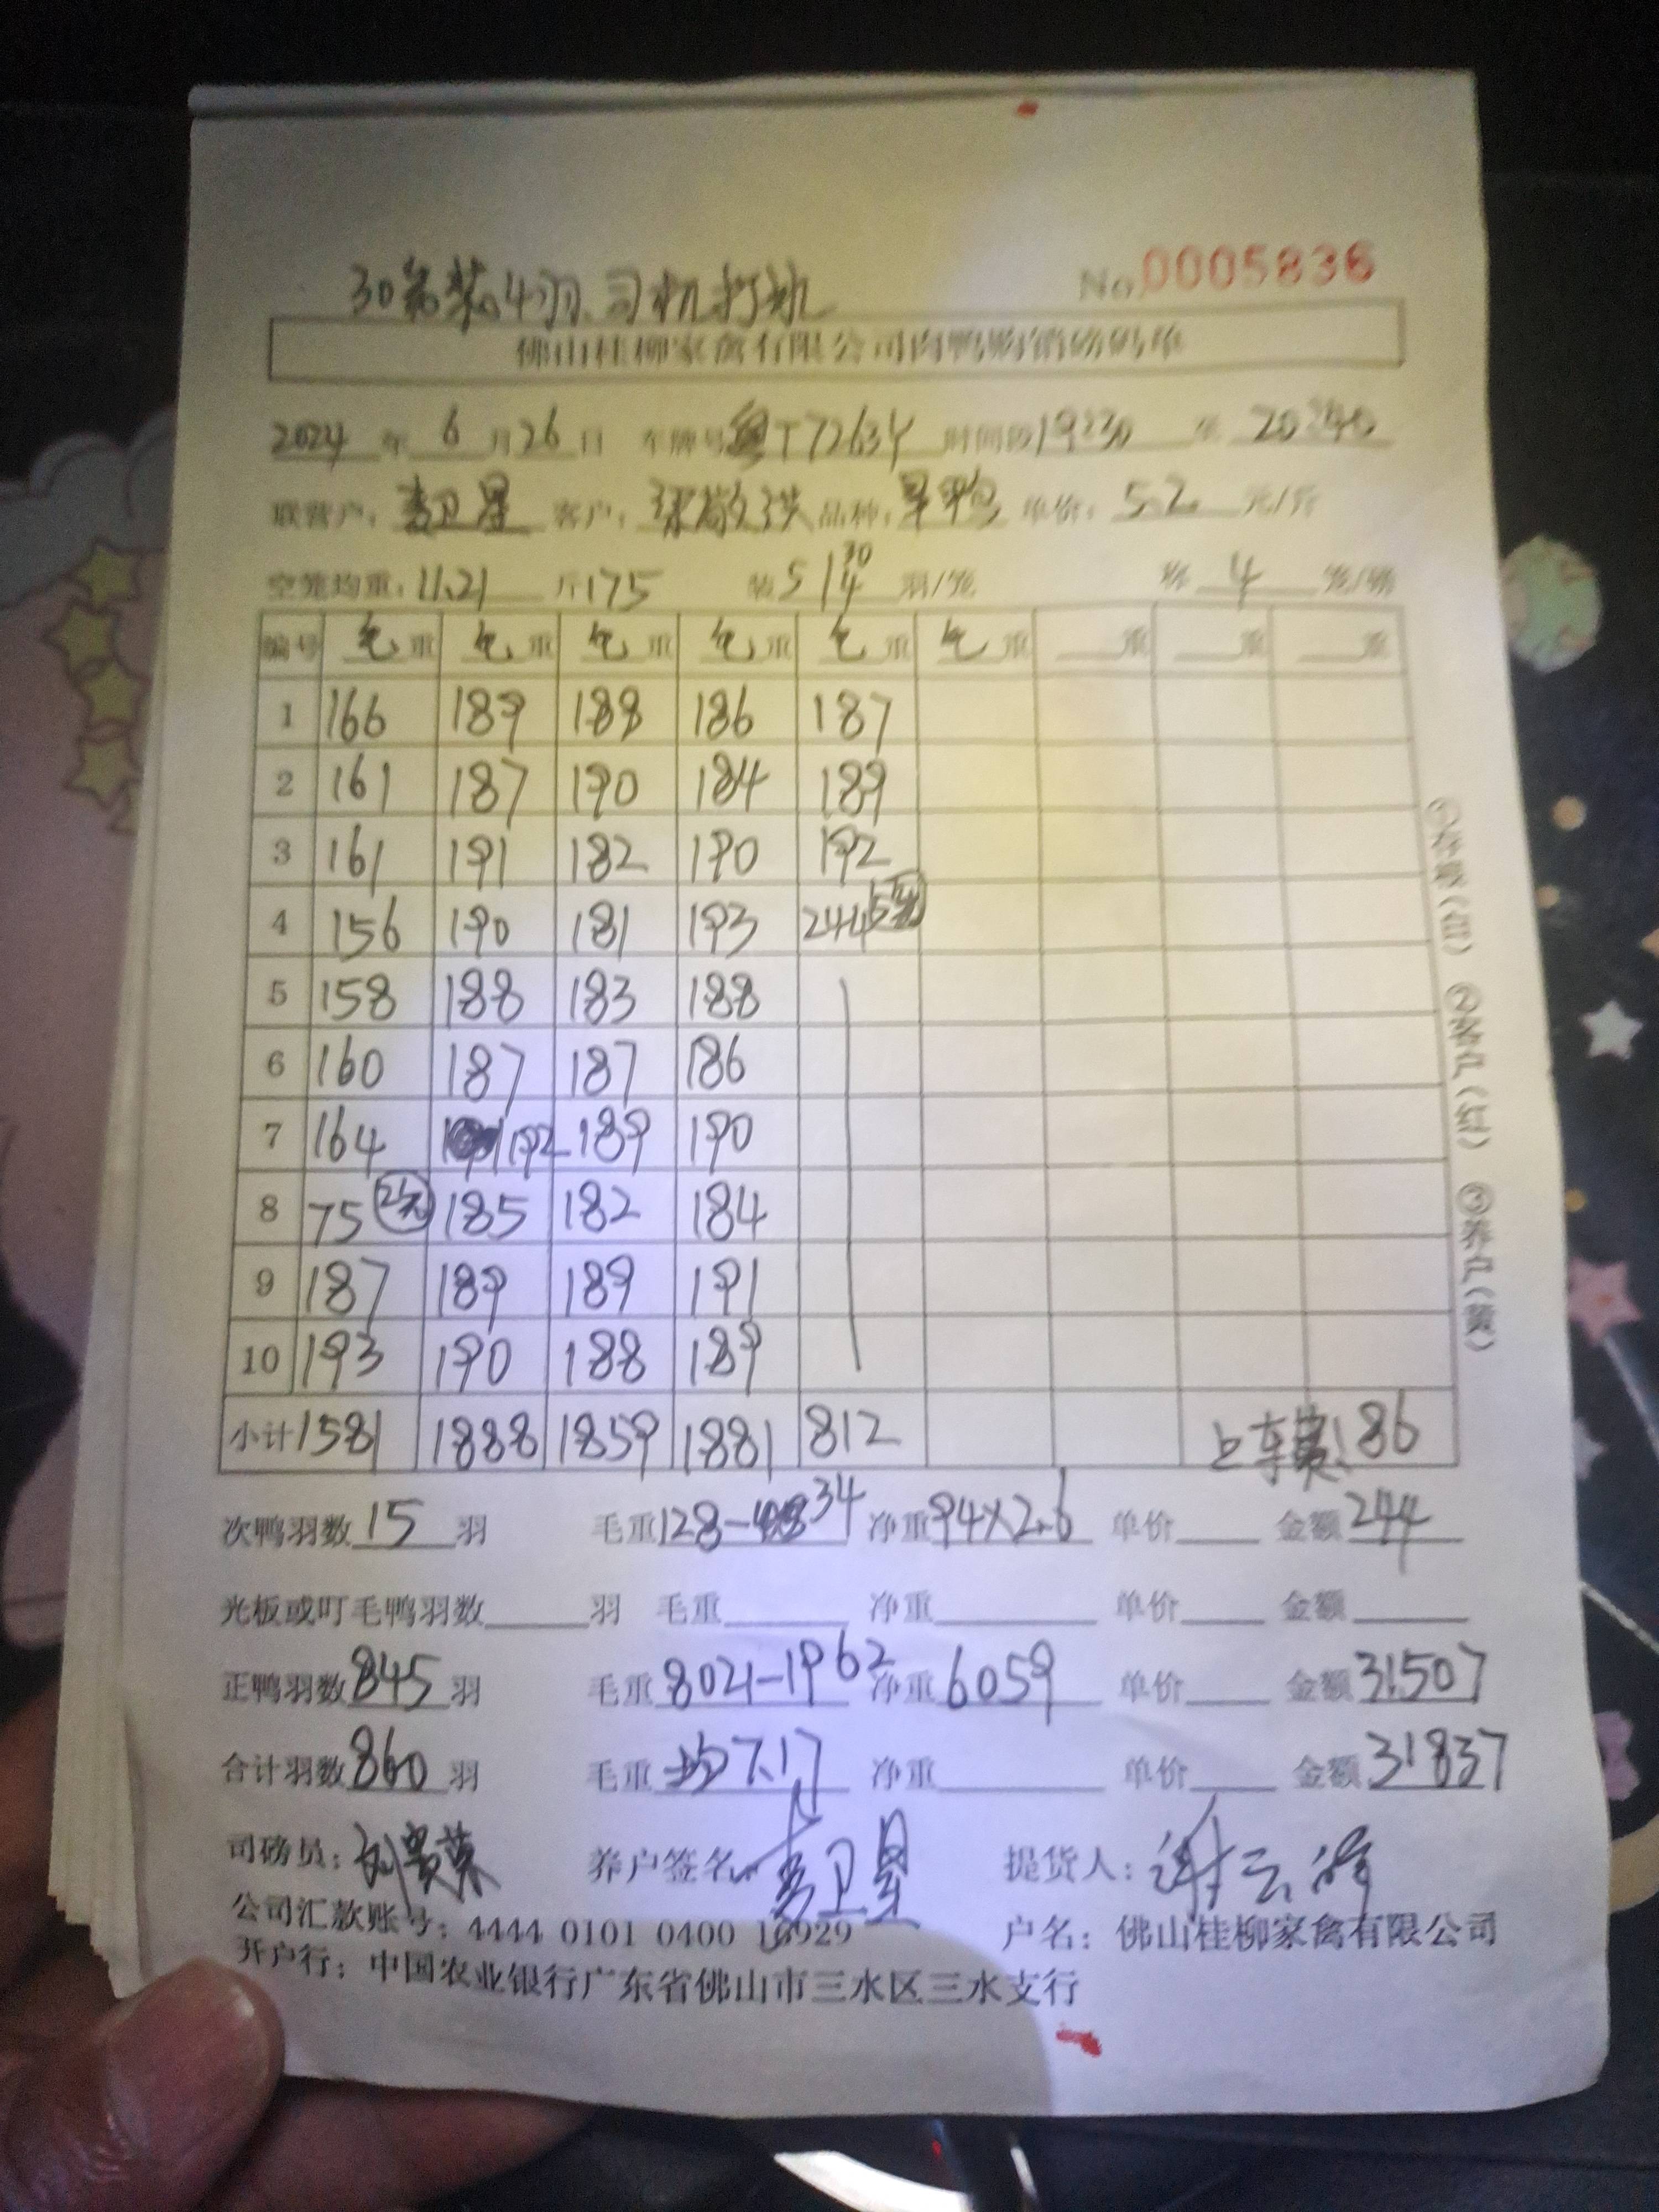 30笼装4羽.司机打水
No.0005836
佛山桂柳家禽有限公司肉鸭购销磅码单
2024年6月26日 车牌号粤T7263Y 时间段19:30至20:40
联营户:麦卫星 客户: 品种: 单价:5.2元/斤
空笼均重:11.21斤175 装5 30/4羽/笼 称4笼/磅
编号 毛重 毛重 毛重 毛重 毛重 毛重 重 重 重
1 166 189 188 186 187
2 161 187 190 184 189
3 161 191 182 190 192
4 156 190 181 193 244 5笼
5 158 188 183 188
6 160 187 187 186
7 164 192 189 190
8 75 2笼 185 182 184
9 187 189 189 191
10 193 190 188 189
小计 1581 1888 1859 1881 812 上车费:86
次鸭羽数15羽 毛重128-34 净重94×2.6 单价 金额244
光板或叮毛鸭羽数 羽 毛重 净重 单价 金额
正鸭羽数845羽 毛重8021-1962 净重6059 单价 金额31507
合计羽数860羽 毛重均7.17 净重 单价 金额31837
司磅员: 养户签名:麦卫星 提货人:谢云峰
公司汇款账号:4444 0101 0400 16929 户名:佛山桂柳家禽有限公司
开户行:中国农业银行广东省佛山市三水区三水支行